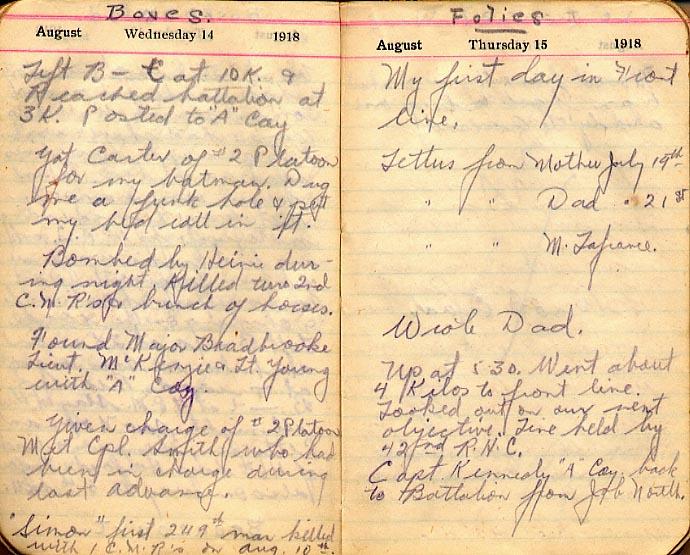 Boves.
August Wednesday 14 1918
Left B - C at 10 K. &
Reached battalion at
3 K. Posted to "A" Coy
Got Carter of #2 Platoon
for my batman. Dug
me a funk hole & put
my bed roll in it.
Bombed by Heinie dur-
ing night, Killed two 2nd
C.M.R's & bunch of horses.
Found Major Bradbrooke
Lieut. McKenzie & Lt. Young
with "A" Coy.
Given charge of # 2 Platoon
Met Cpl. Smith who had
been in charge during
last advance.
"Simon" first 249th man killed
with 1 C.M.R's on Aug. 10th.
Folies
August Thursday 15 1918
My first day in Front
line.
Letters from Mother July 19th
" " Dad " 21st
" " M. Lafrance.
Wrote Dad.
Up at 5.30. Went about
4 Kilos to front line.
Looked out on our next
objective. Line held by
42nd R.N.C.
Capt. Kennedy "A" Coy. back
to Battalion from North.